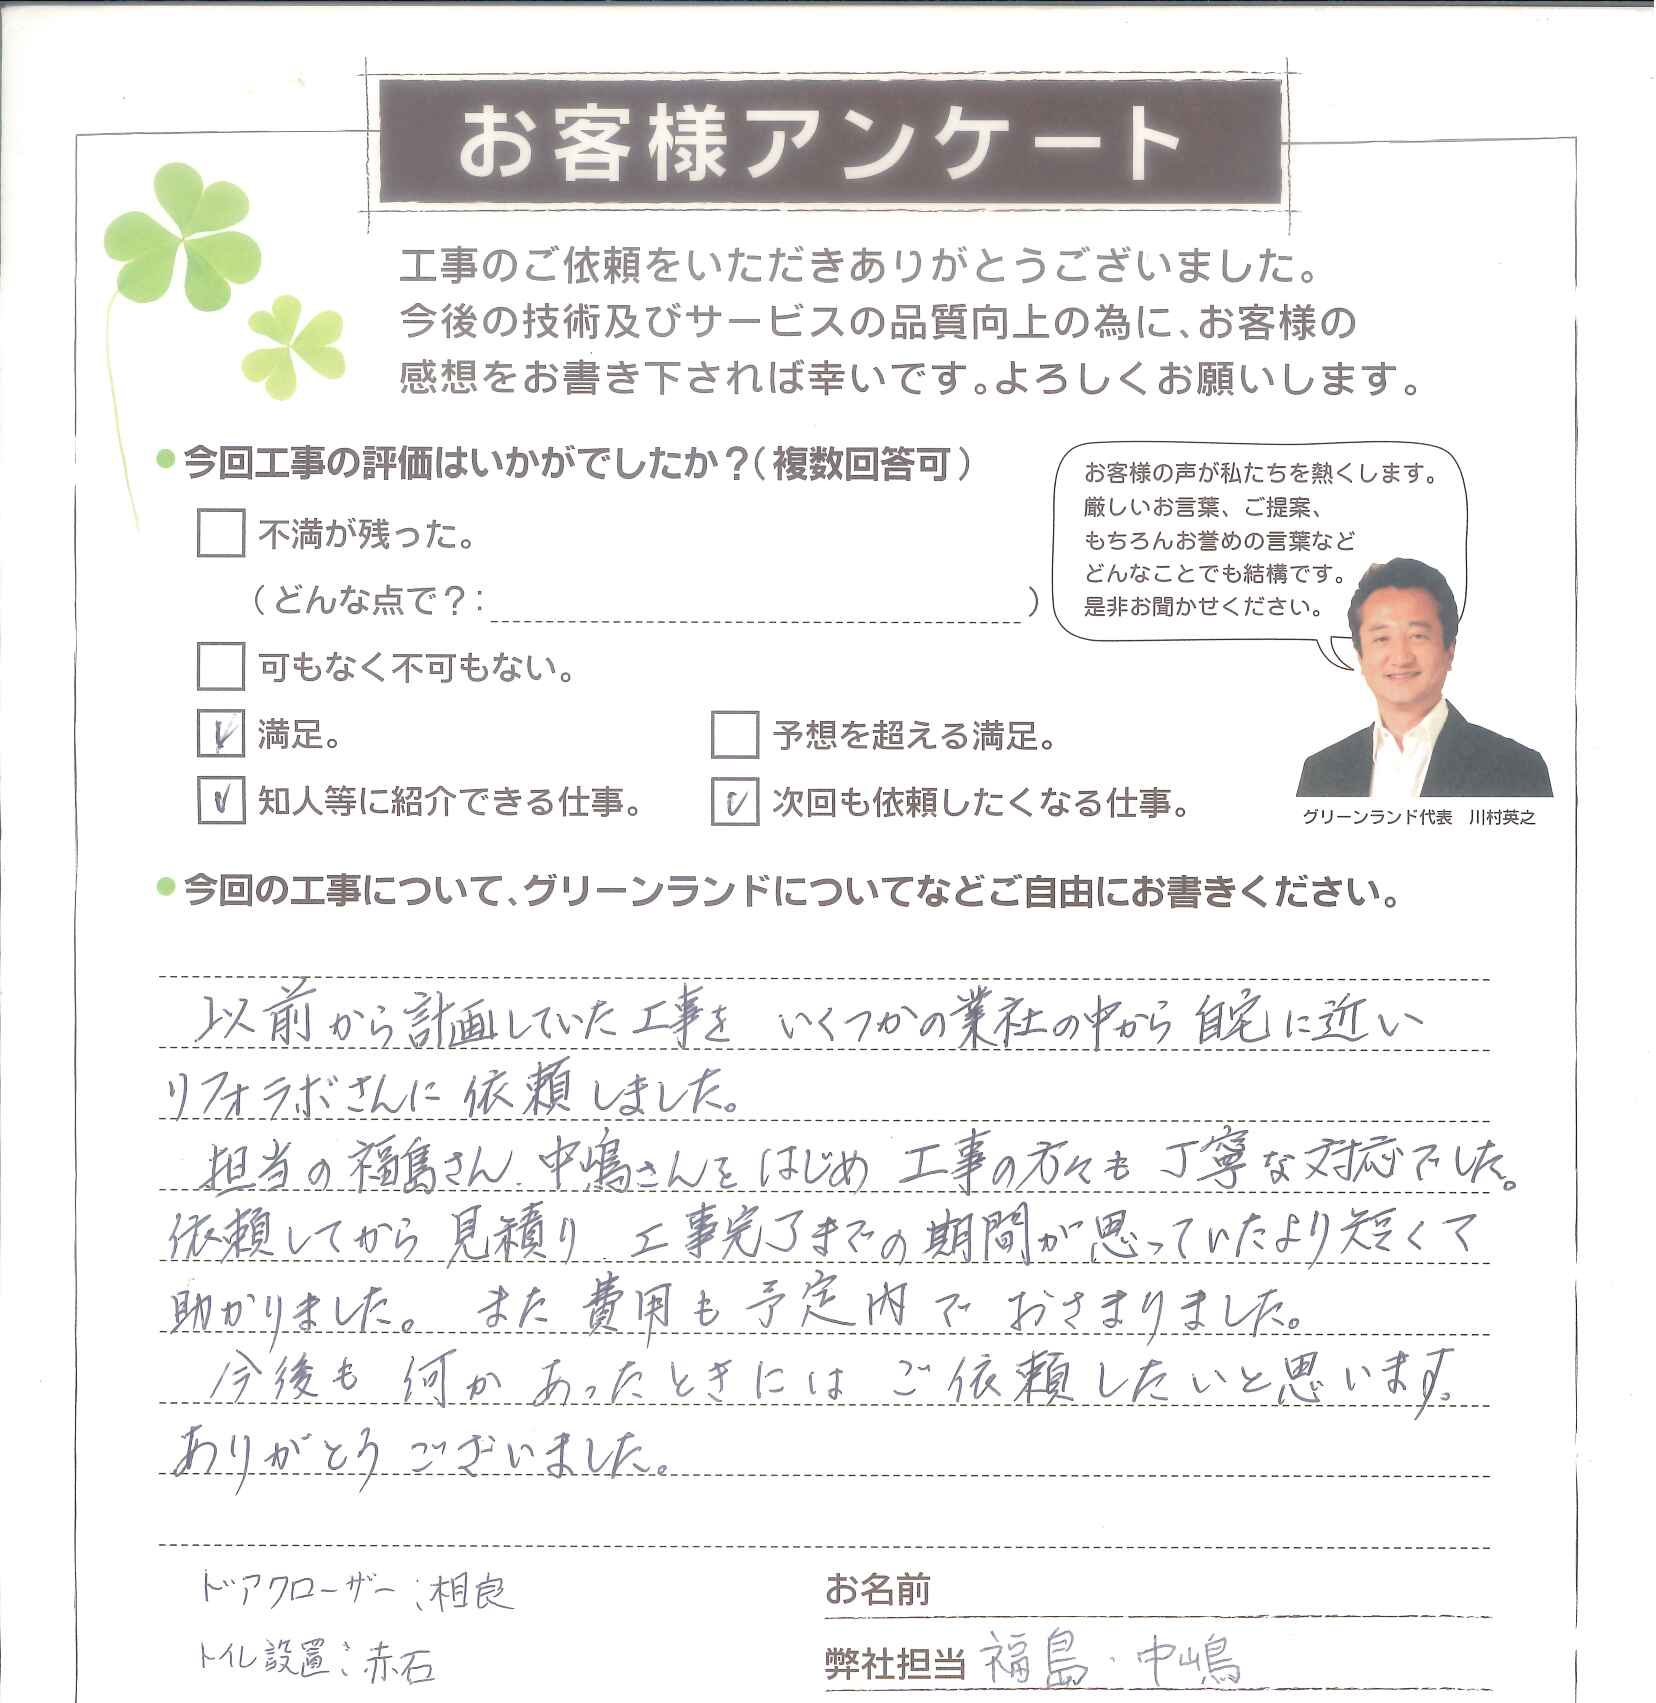 お客様アンケート
工事のご依頼をいただきありがとうございました。
今後の技術及びサービスの品質向上の為に、お客様の
感想をお書き下されば幸いです。よろしくお願いします。
●今回工事の評価はいかがでしたか？（複数回答可）
□ 不満が残った。
（どんな点で？：　）
□ 可もなく不可もない。
☑ 満足。
□ 予想を超える満足。
☑ 知人等に紹介できる仕事。
☑ 次回も依頼したくなる仕事。
お客様の声が私たちを熱くします。
厳しいお言葉、ご提案、
もちろんお誉めの言葉など
どんなことでも結構です。
是非お聞かせください。
グリーンランド代表　川村英之
●今回の工事について、グリーンランドについてなどご自由にお書きください。
以前から計画していた工事を　いくつかの業社の中から 自宅に近い
リフォラボさんに 依頼しました。
担当の福島さん、中嶋さんを はじめ 工事の方々も 丁寧な対応でした。
依頼してから 見積り、工事完了までの期間が思っていたより短くて
助かりました。 また 費用も予定内で おさまりました。
今後も 何か あったときには ご依頼したいと思います。
ありがとうございました。
ドアクローザー：相良
トイレ設置：赤石
お名前
弊社担当 福島・中嶋